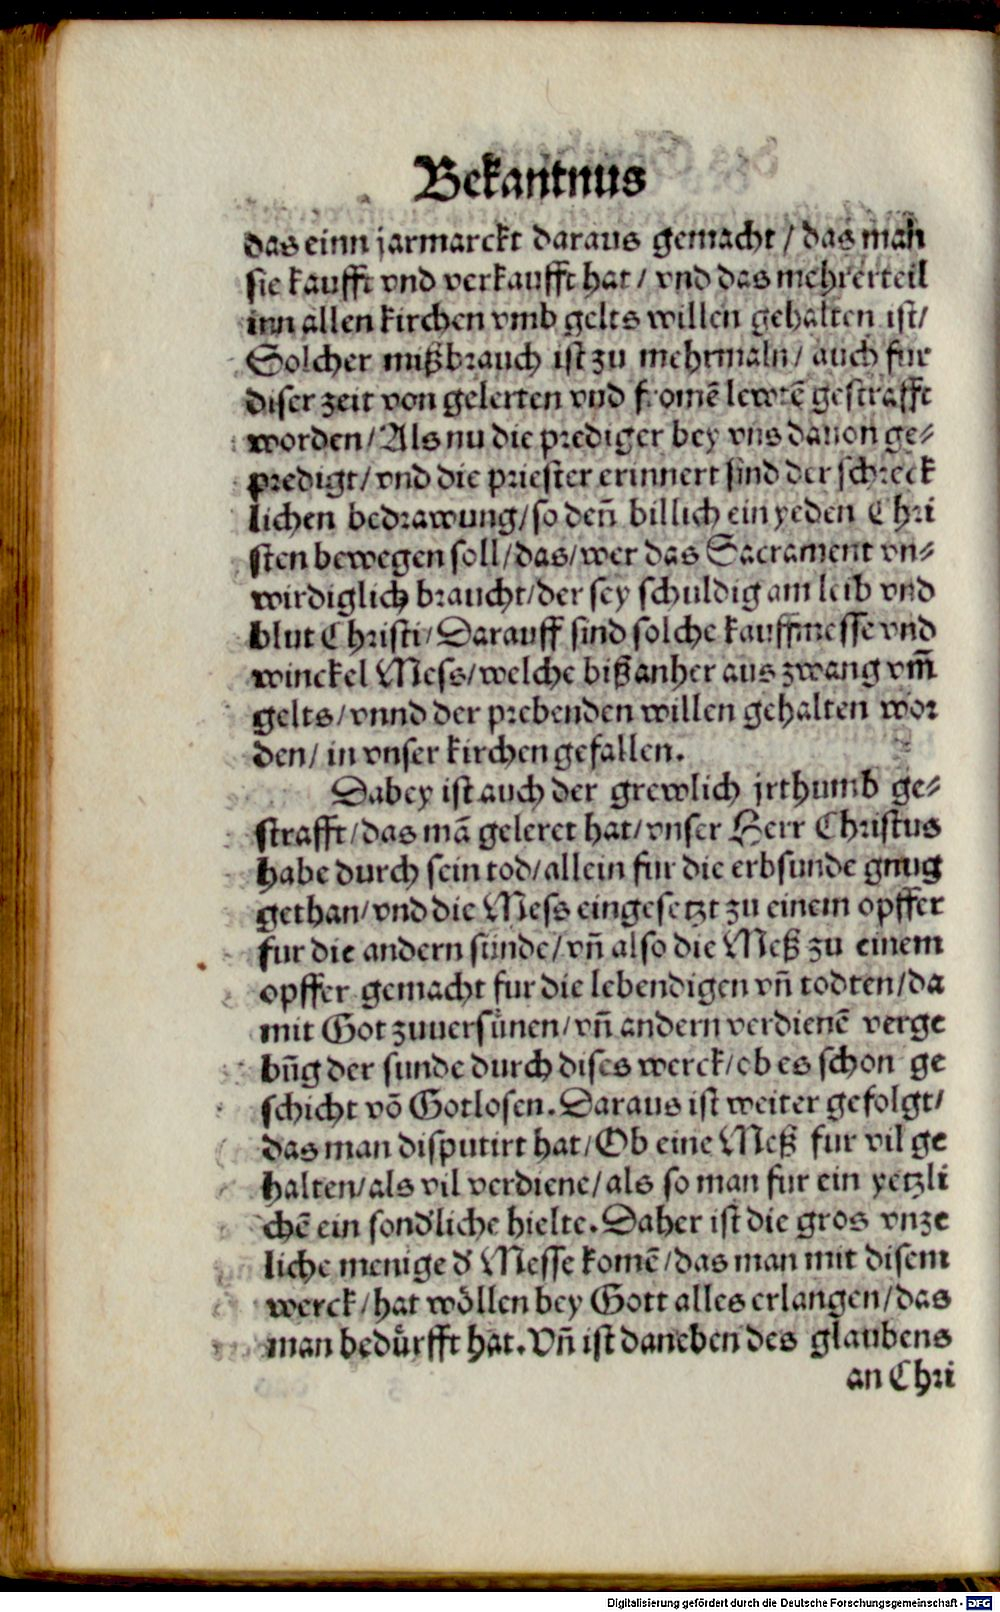 Bekantnus
das einn jarmarckt daraus gemacht / das man
sie kaufft vnd verkaufft hat / vnd das mehrerteil
inn allen kirchen vmb gelts willen gehalten ist/
Solcher mißbrauch ist zu mehrmaln/ auch fur
diser zeit von gelerten vnd fromē lewtē gestrafft
worden/ Als nu die prediger bey vns dauon ge⸗
predigt/ vnd die priester erinnert sind der schreck
lichen bedrawung/ so deñ billich ein yeden Chri
sten bewegen soll/ das/ wer das Sacrament vn⸗
wirdiglich braucht/ der sey schuldig am leib vnd
blut Christi/ Darauff sind solche kauffmesse vnd
winckel Mess/ welche bißanher aus zwang vm̃
gelts/ vnnd der prebenden willen gehalten wor
den/ in vnser kirchen gefallen.
Dabey ist auch der grewlich jrthumb ge⸗
strafft/ das mā geleret hat/ vnser Herr Christus
habe durch sein tod/ allein fur die erbsunde gnug
gethan/ vnd die Mess eingesetzt zu einem opffer
fur die andern sünde/ vñ also die Meß zu einem
opffer gemacht fur die lebendigen vñ todten/ da
mit Got zuuersünen/ vñ andern verdienē verge
bũg der sunde durch dises werck/ ob es schon ge
schicht vō Gotlosen. Daraus ist weiter gefolgt/
das man disputirt hat/ Ob eine Meß fur vil ge
halten/ als vil verdiene/ als so man fur ein yetzli
chē ein sond'liche hielte. Daher ist die gros vnze
liche menige d' Messe komē/ das man mit disem
werck/ hat wöllen bey Gott alles erlangen/ das
man bedürfft hat. Vñ ist daneben des glaubens
an Chri
Digitalisierung gefördert durch die Deutsche Forschungsgemeinschaft - DFG